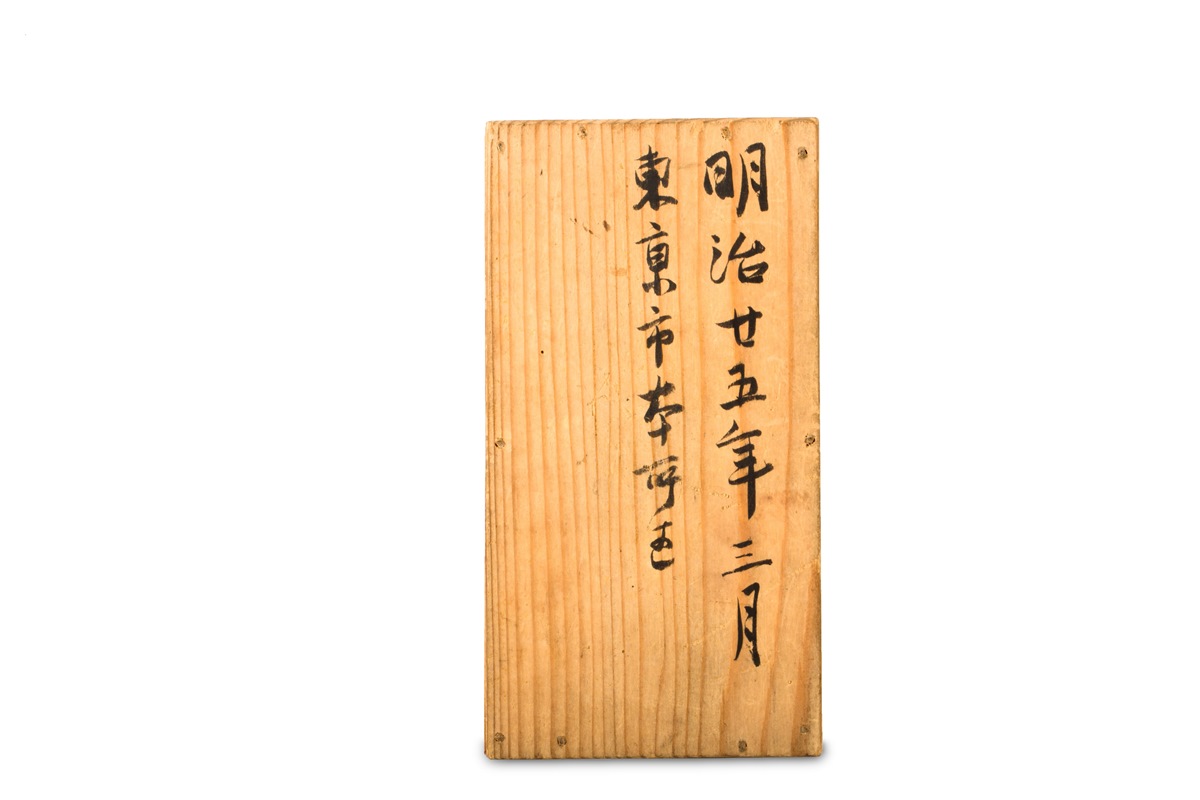 明治廿五年三月
東京市本所区